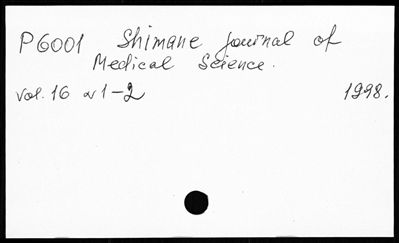 P6001 Shimane Journal of
Medical Science.
vol. 16 N 1-2 1998.